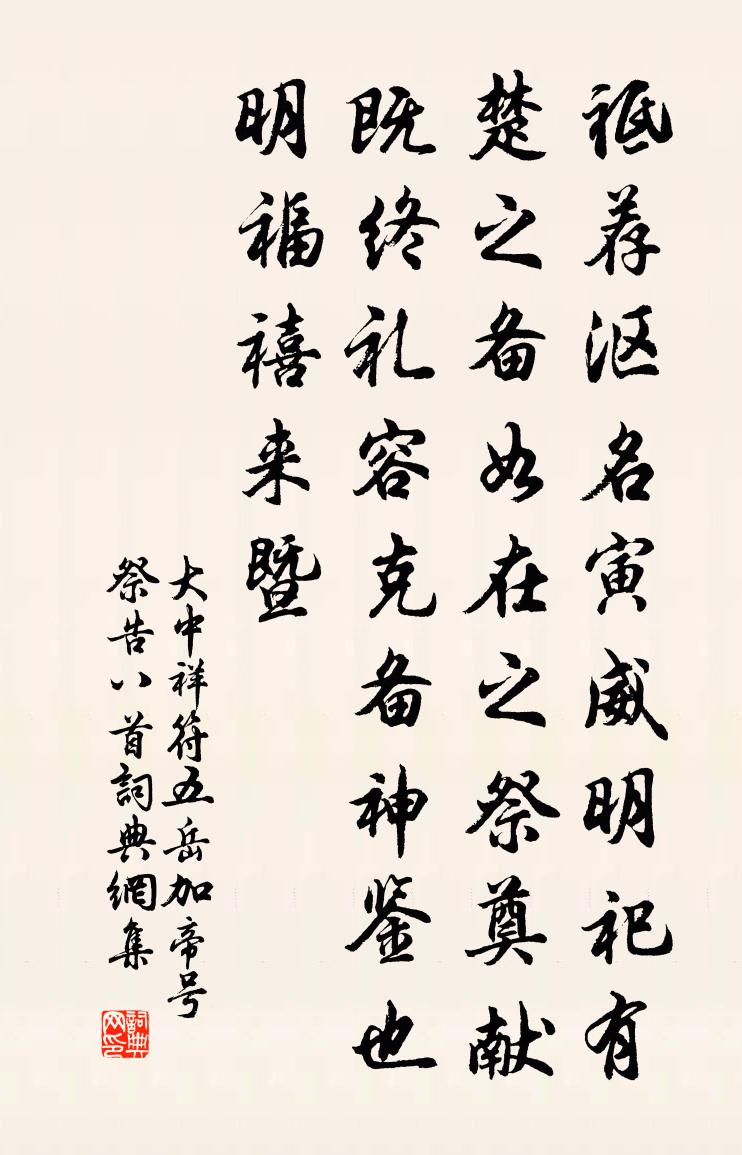 祗荐沤名寅威明祀有
楚之备如在之祭奠献
既终礼容克备神鉴也
明福禧来暨
大中祥符五岳加帝号
祭告八首詞典網集
詞典网印